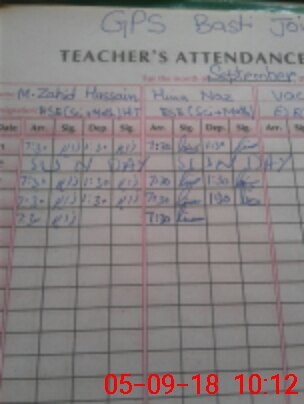 GPS Basti Joi
TEACHER'S ATTENDANCE
For the month of September
M. Zahid Hassain Huma Naz Vac
ESE(Sci+Math) HT ESE(Sci+Math) ESE
Date Arr. Sig. Dep. Sig. Arr. Sig. Dep. Sig. Arr.
7:30 1:30 7:30 1:30
SUNDAY SUNDAY
7:30 1:30 7:30 1:30
7:30 1:30 7:30 1:30
7:30 7:30
05-09-18 10:12